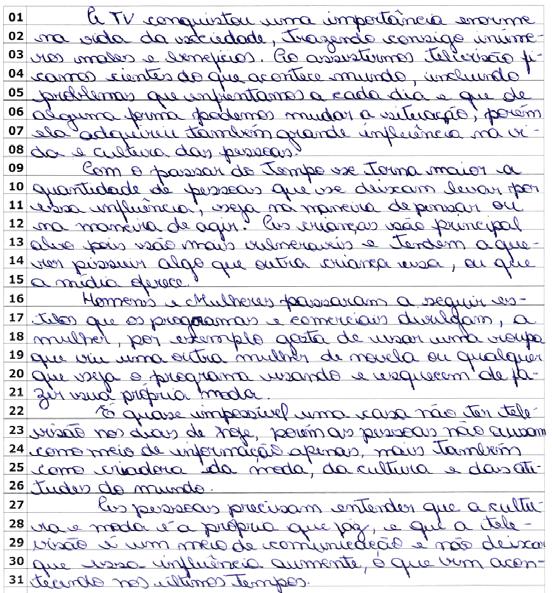 01 A TV conquistou uma importância enorme
02 na vida da sociedade, trazendo consigo inúme-
03 ros males e benefícios. Ao assistirmos televisão fi-
04 camos cientes do que acontece mundo, incluindo
05 problemas que enfrentamos a cada dia e que de
06 alguma forma podemos mudar a situação, porém
07 ela adquiriu também grande influência na vi-
08 da e cultura das pessoas.
09 Com o passar do tempo se torna maior a
10 quantidade de pessoas que se deixam levar por
11 essa influência, seja na maneira de pensar ou
12 na maneira de agir. As crianças são principal
13 alvo pois são mais vulneraveis e tendem a que-
14 rer possuir algo que outra criança usa, ou que
15 a mídia oferece.
16 Homens e Mulheres passaram a seguir es-
17 tilos que os programas e comerciais divulgam, a
18 mulher, por exemplo gosta de usar uma roupa
19 que viu uma outra mulher de novela ou qualquer
20 que seja o programa usando e esquecem de fa-
21 zer sua própria moda.
22 É quase impossível uma casa não ter tele-
23 visão nos dias de hoje, porém as pessoas não a usam
24 como meio de informação apenas, mais também
25 como criadora da moda, da cultura e das ati-
26 tudes do mundo.
27 As pessoas precisam entender que a cultu-
28 ra e moda é a própria que faz, e que a tele-
29 visão é um meio de comunicação e não deixar
30 que essa influência aumente, o que vem acon-
31 tecendo nos últimos tempos.